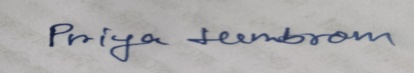 Priya Hembrom